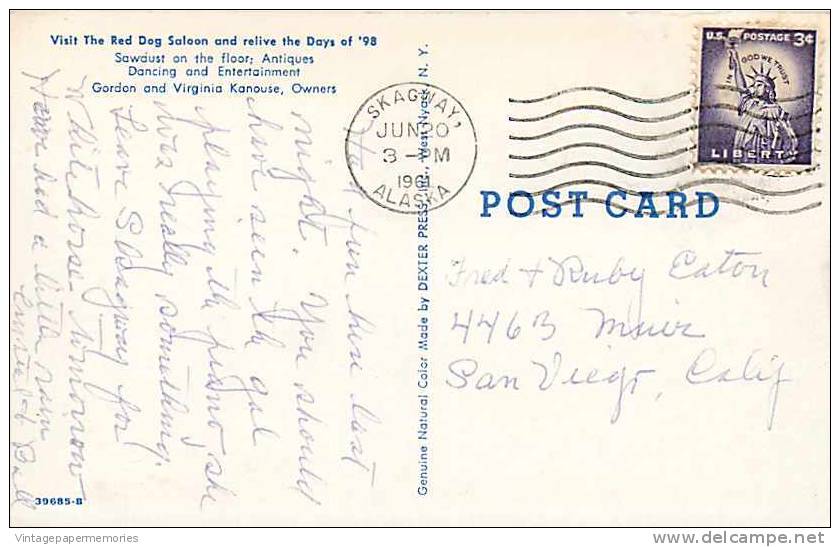 Visit The Red Dog Saloon and relive the Days of '98
Sawdust on the floor; Antiques
Dancing and Entertainment
Gordon and Virginia Kanouse, Owners
Had fun here last
night. You should
have seen the gal
playing the piano, she
was really something.
Leave Skagway for
Whitehorse tomorrow
Have had a little rain
Ball
39685-B
Genuine Natural Color Made by DEXTER PRESS, INC., West Nyack, N. Y.
SKAGWAY,
JUN 20
3 - PM
1961
ALASKA
U.S. POSTAGE 3¢
IN GOD WE TRUST
LIBERTY
POST CARD
Fred + Ruby Eaton
4463 Muir
San Diego, Calif
Vintagepapermemories
delcampe.net